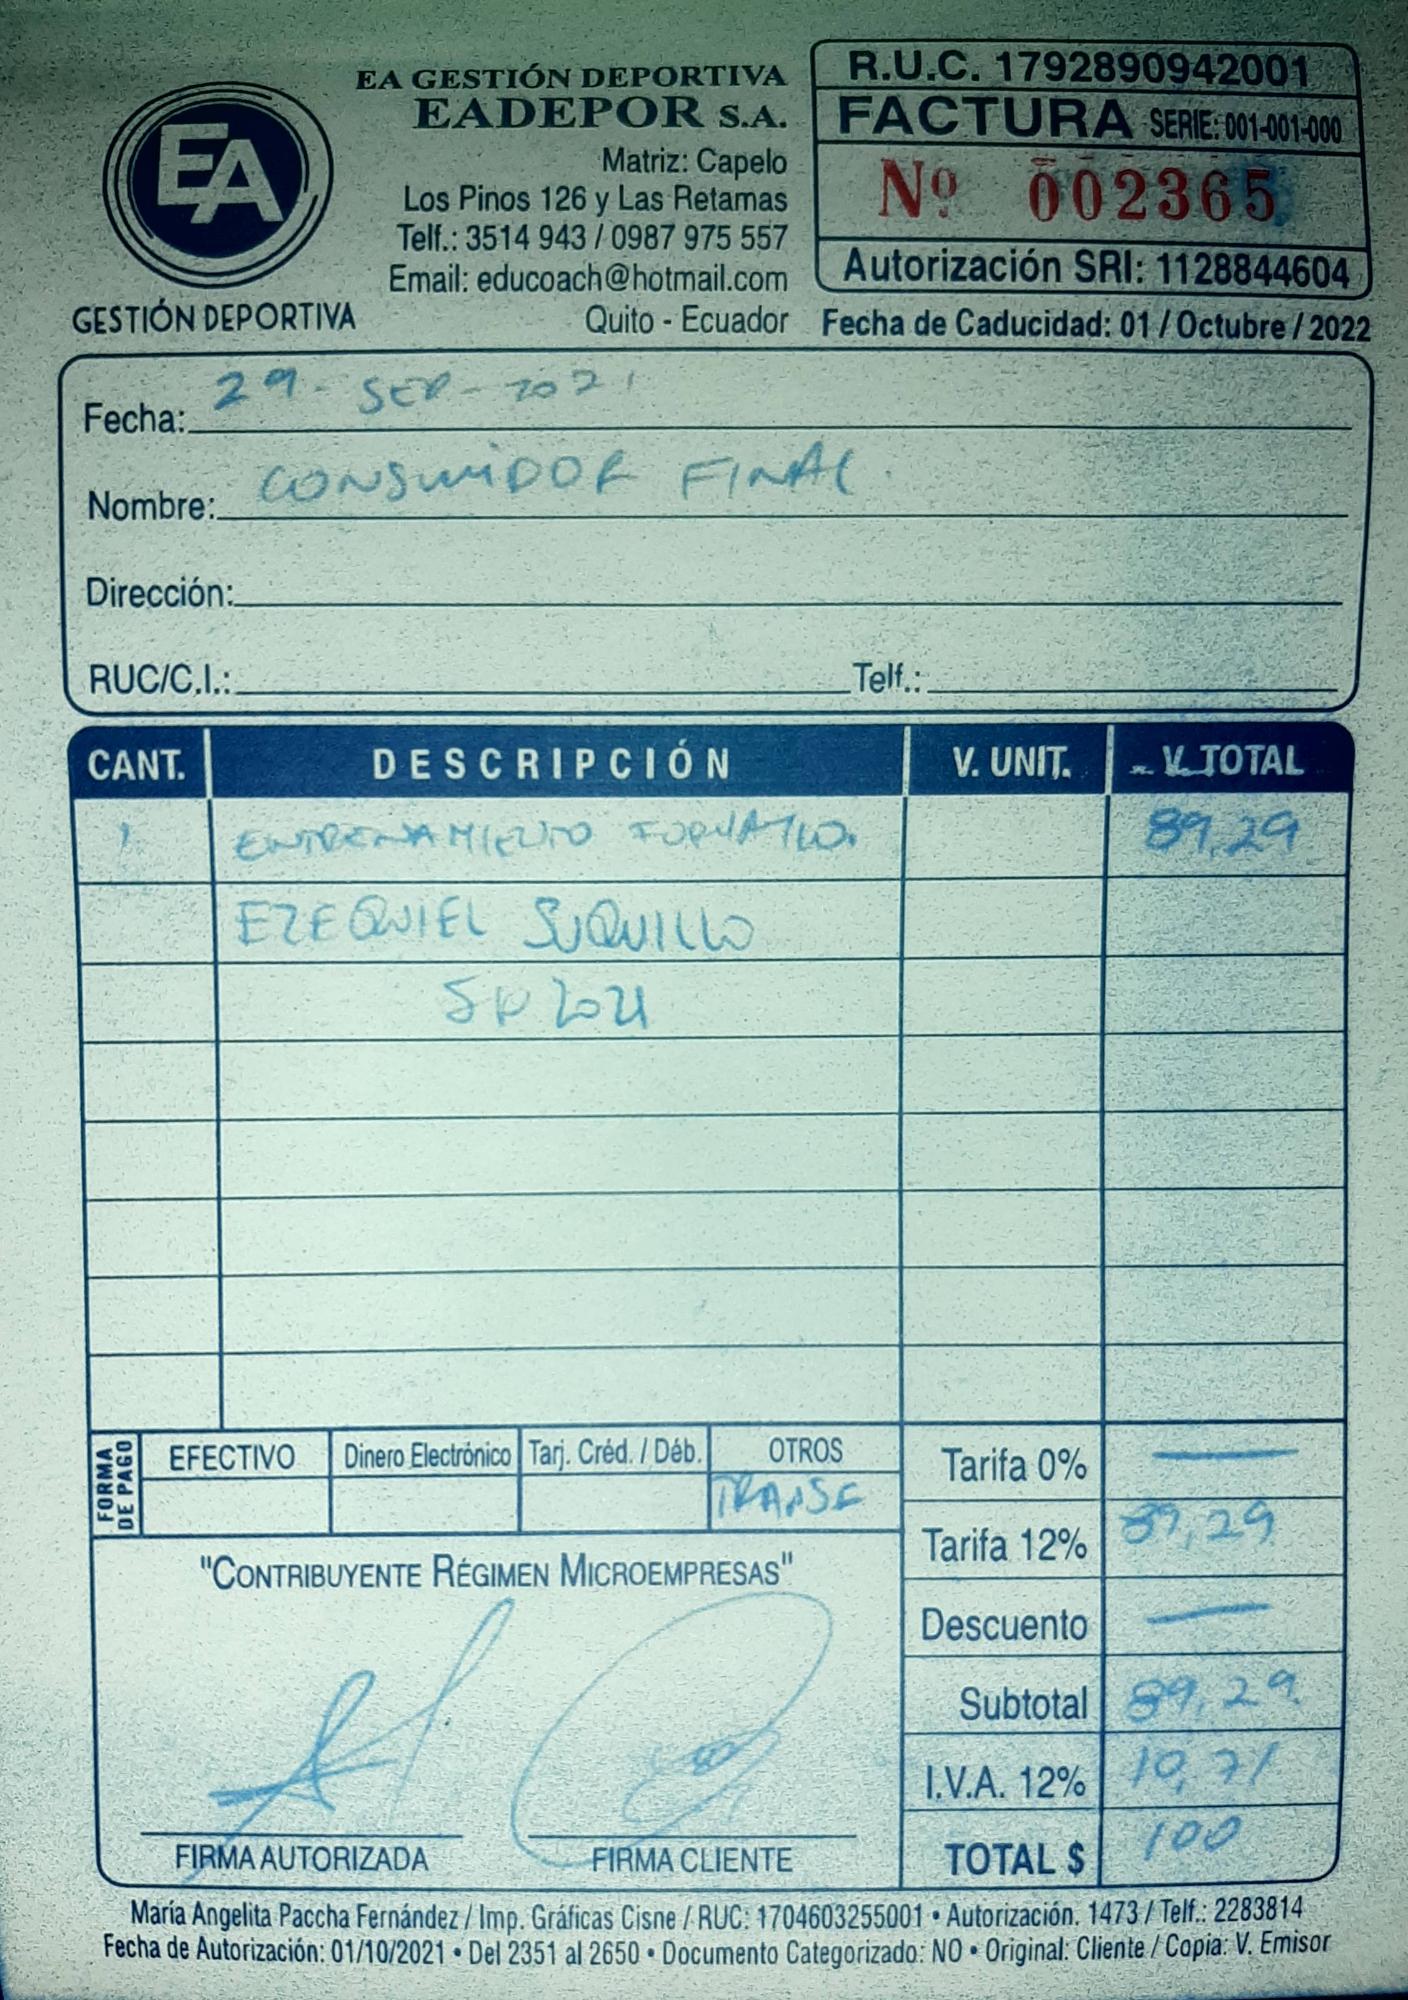 EA
GESTIÓN DEPORTIVA
EA GESTIÓN DEPORTIVA
EADEPOR S.A.
Matriz: Capelo
Los Pinos 126 y Las Retamas
Telf.: 3514 943 / 0987 975 557
Email: educoach@hotmail.com
Quito - Ecuador
R.U.C. 1792890942001
FACTURA SERIE: 001-001-000
Nº 002365
Autorización SRI: 1128844604
Fecha de Caducidad: 01 / Octubre / 2022
Fecha: 29 - SEP - 2021
Nombre: CONSUMIDOR FINAL.
Dirección:
RUC/C.I.: Telf.:
CANT. DESCRIPCIÓN V. UNIT. V. TOTAL
1 ENTRENAMIENTO FORMATIVO. 89,29
EZEQUIEL SUQUILLO
2021
FORMA DE PAGO
EFECTIVO Dinero Electrónico Tarj. Créd. / Déb. OTROS
TRANSF
Tarifa 0% —
Tarifa 12% 89,29
Descuento —
Subtotal 89,29
I.V.A. 12% 10,71
TOTAL $ 100
"CONTRIBUYENTE RÉGIMEN MICROEMPRESAS"
FIRMA AUTORIZADA FIRMA CLIENTE
María Angelita Paccha Fernández / Imp. Gráficas Cisne / RUC: 1704603255001 • Autorización. 1473 / Telf.: 2283814
Fecha de Autorización: 01/10/2021 • Del 2351 al 2650 • Documento Categorizado: NO • Original: Cliente / Copia: V. Emisor